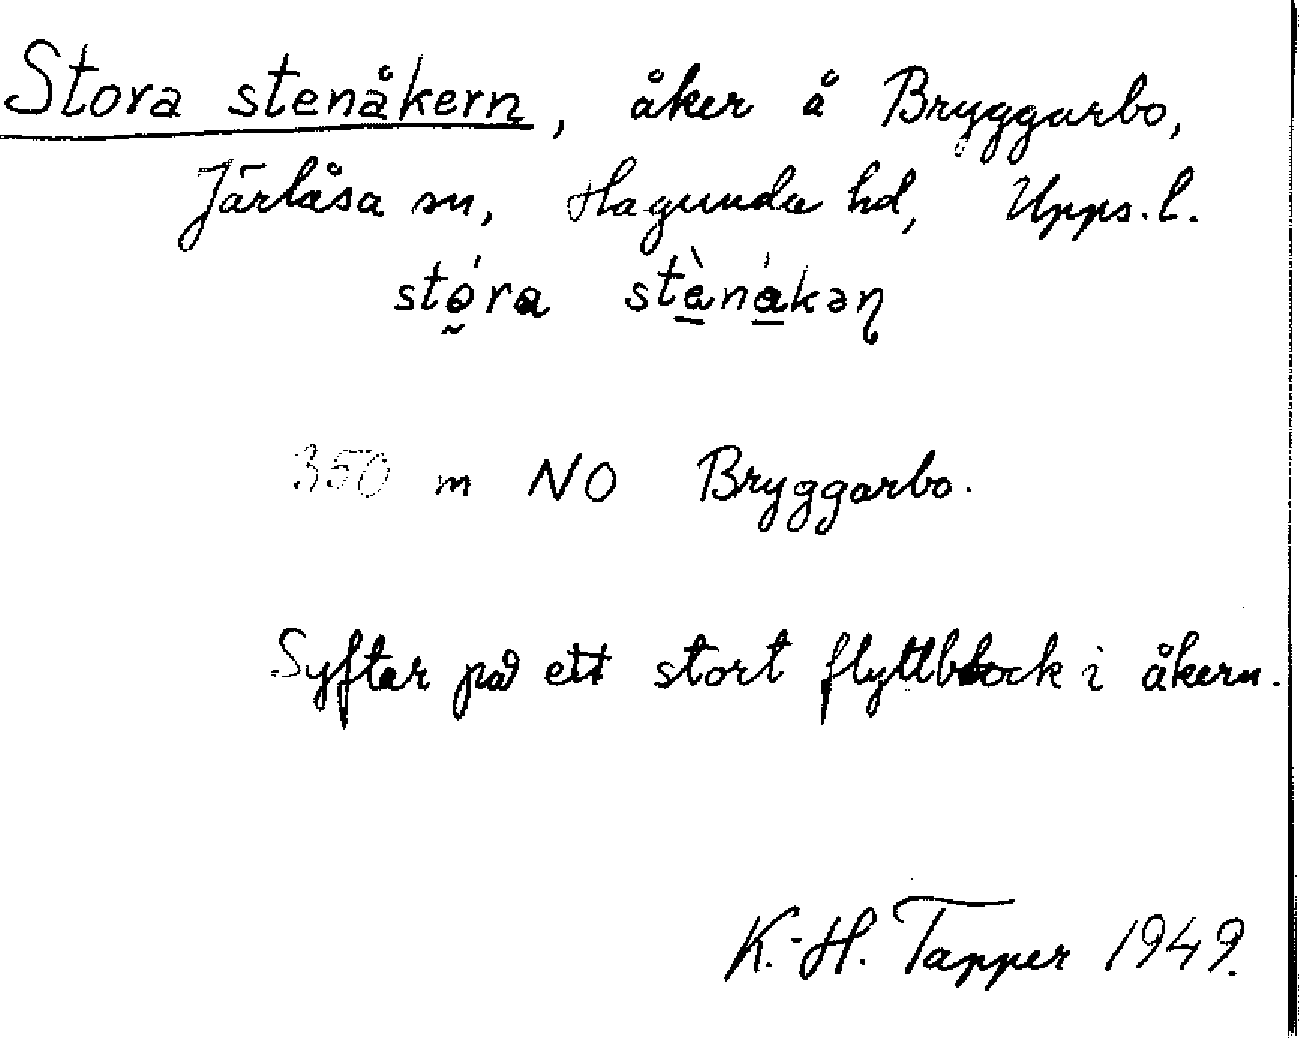 Stora stenåkern, åker å Bryggarbo,
Järlåsa sn, Hagunda hd, Upps. l.
stó̰ra stè̱ná̱kəɳ
350 m NO Bryggarbo.
Syftar på ett stort flyttblock i åkern.
K.-H. Tapper 1949.